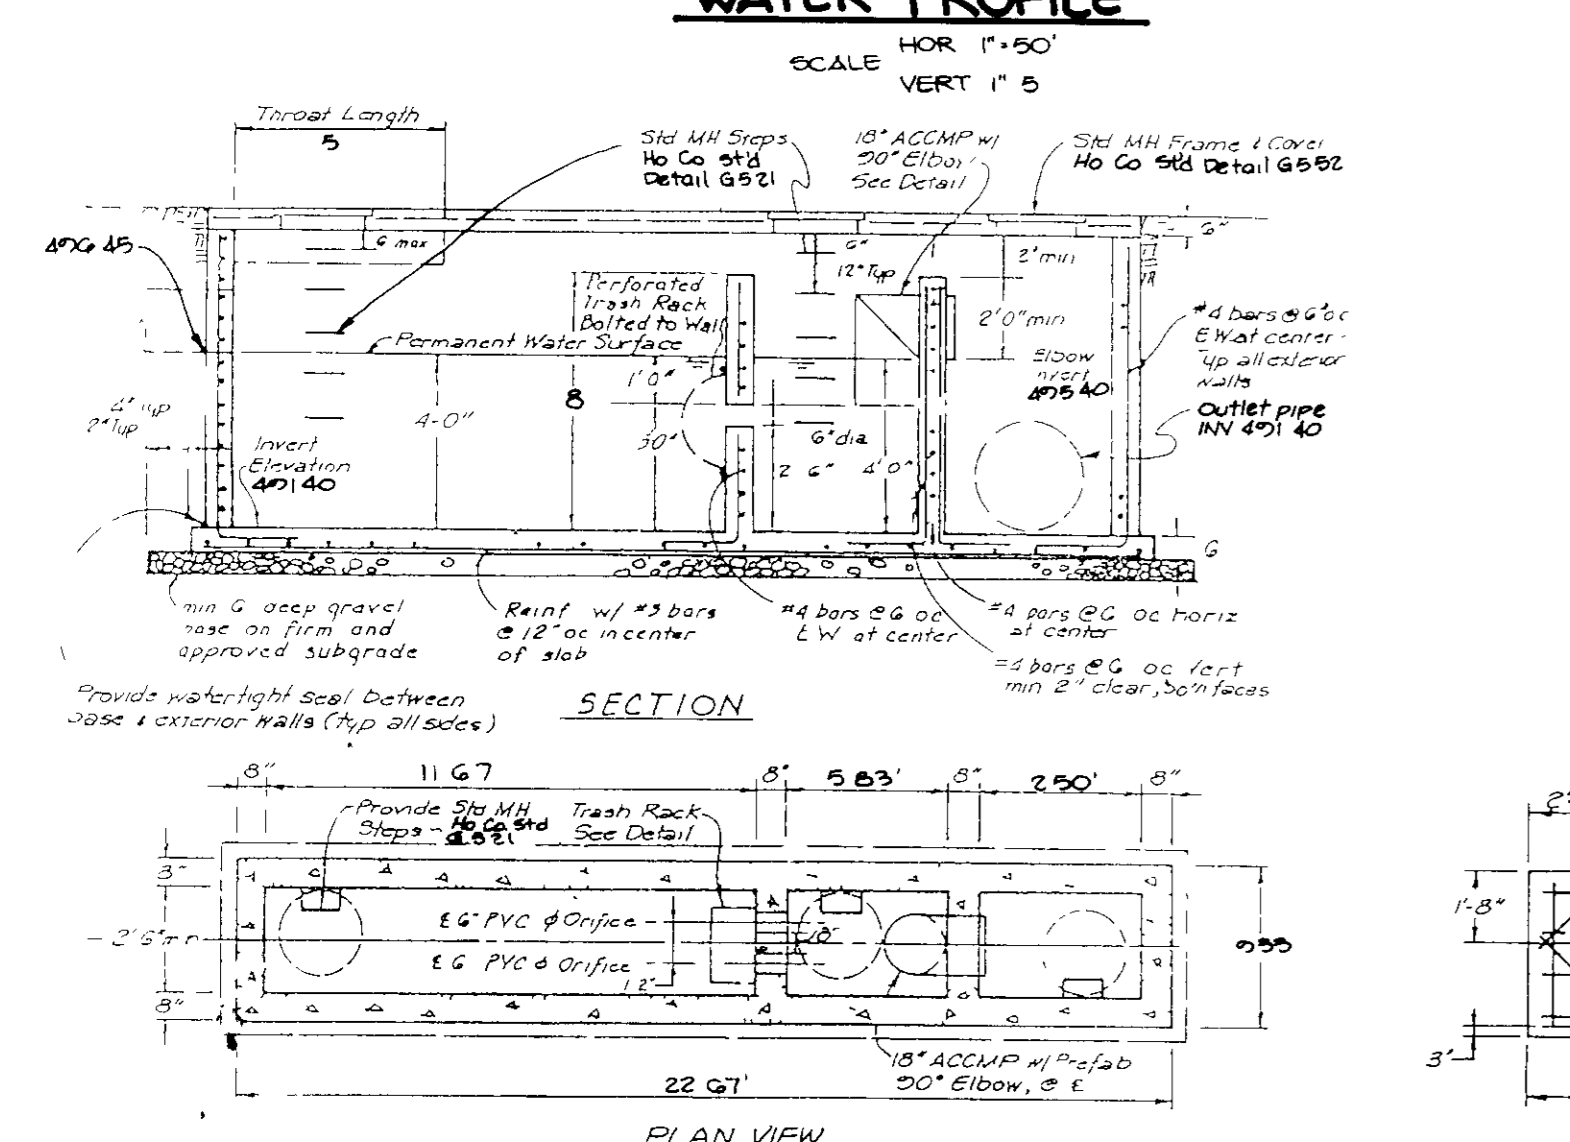 WATER PROFILE
SCALE HOR 1"=50'
VERT 1" 5
Throat Length
5
Std MH Steps
Ho Co Std
Detail G521
18" ACCMP w/
90° Elbow
See Detail
Std MH Frame & Cover
Ho Co Std Detail G552
496 45
6 max
6"
12" Typ
2' min
6"
Perforated
Trash Rack
Bolted to Wall
Permanent Water Surface
2'0" min
#4 bars @ 6" oc
EW at center
Typ all exterior
Walls
Elbow
Invert
495 40
Outlet pipe
INV 491 40
1'0"
8
4-0"
30"
6" dia
2 6"
4'0"
4" Typ
2" Typ
Invert
Elevation
491 40
6
min 6 deep gravel
base on firm and
approved subgrade
Reinf w/ #5 bars
@ 12" oc in center
of slab
#4 bars @ 6 oc
EW at center
#4 bars @ 6 oc horiz
at center
#4 bars @ 6 oc vert
min 2" clear, both faces
Provide watertight seal between
base & exterior walls (typ all sides)
SECTION
8" 11 67 8" 5 83' 8" 2 50' 8"
Provide Std MH
Steps - Ho Co Std
G 521
Trash Rack
See Detail
3"
2'6" mn
8"
℄ 6" PVC ϕ Orifice
℄ 6 PVC ϕ Orifice
18"
12"
18" ACCMP w/ Prefab
90° Elbow, @ ℄
22 67'
1'-8"
3'
PLAN VIEW